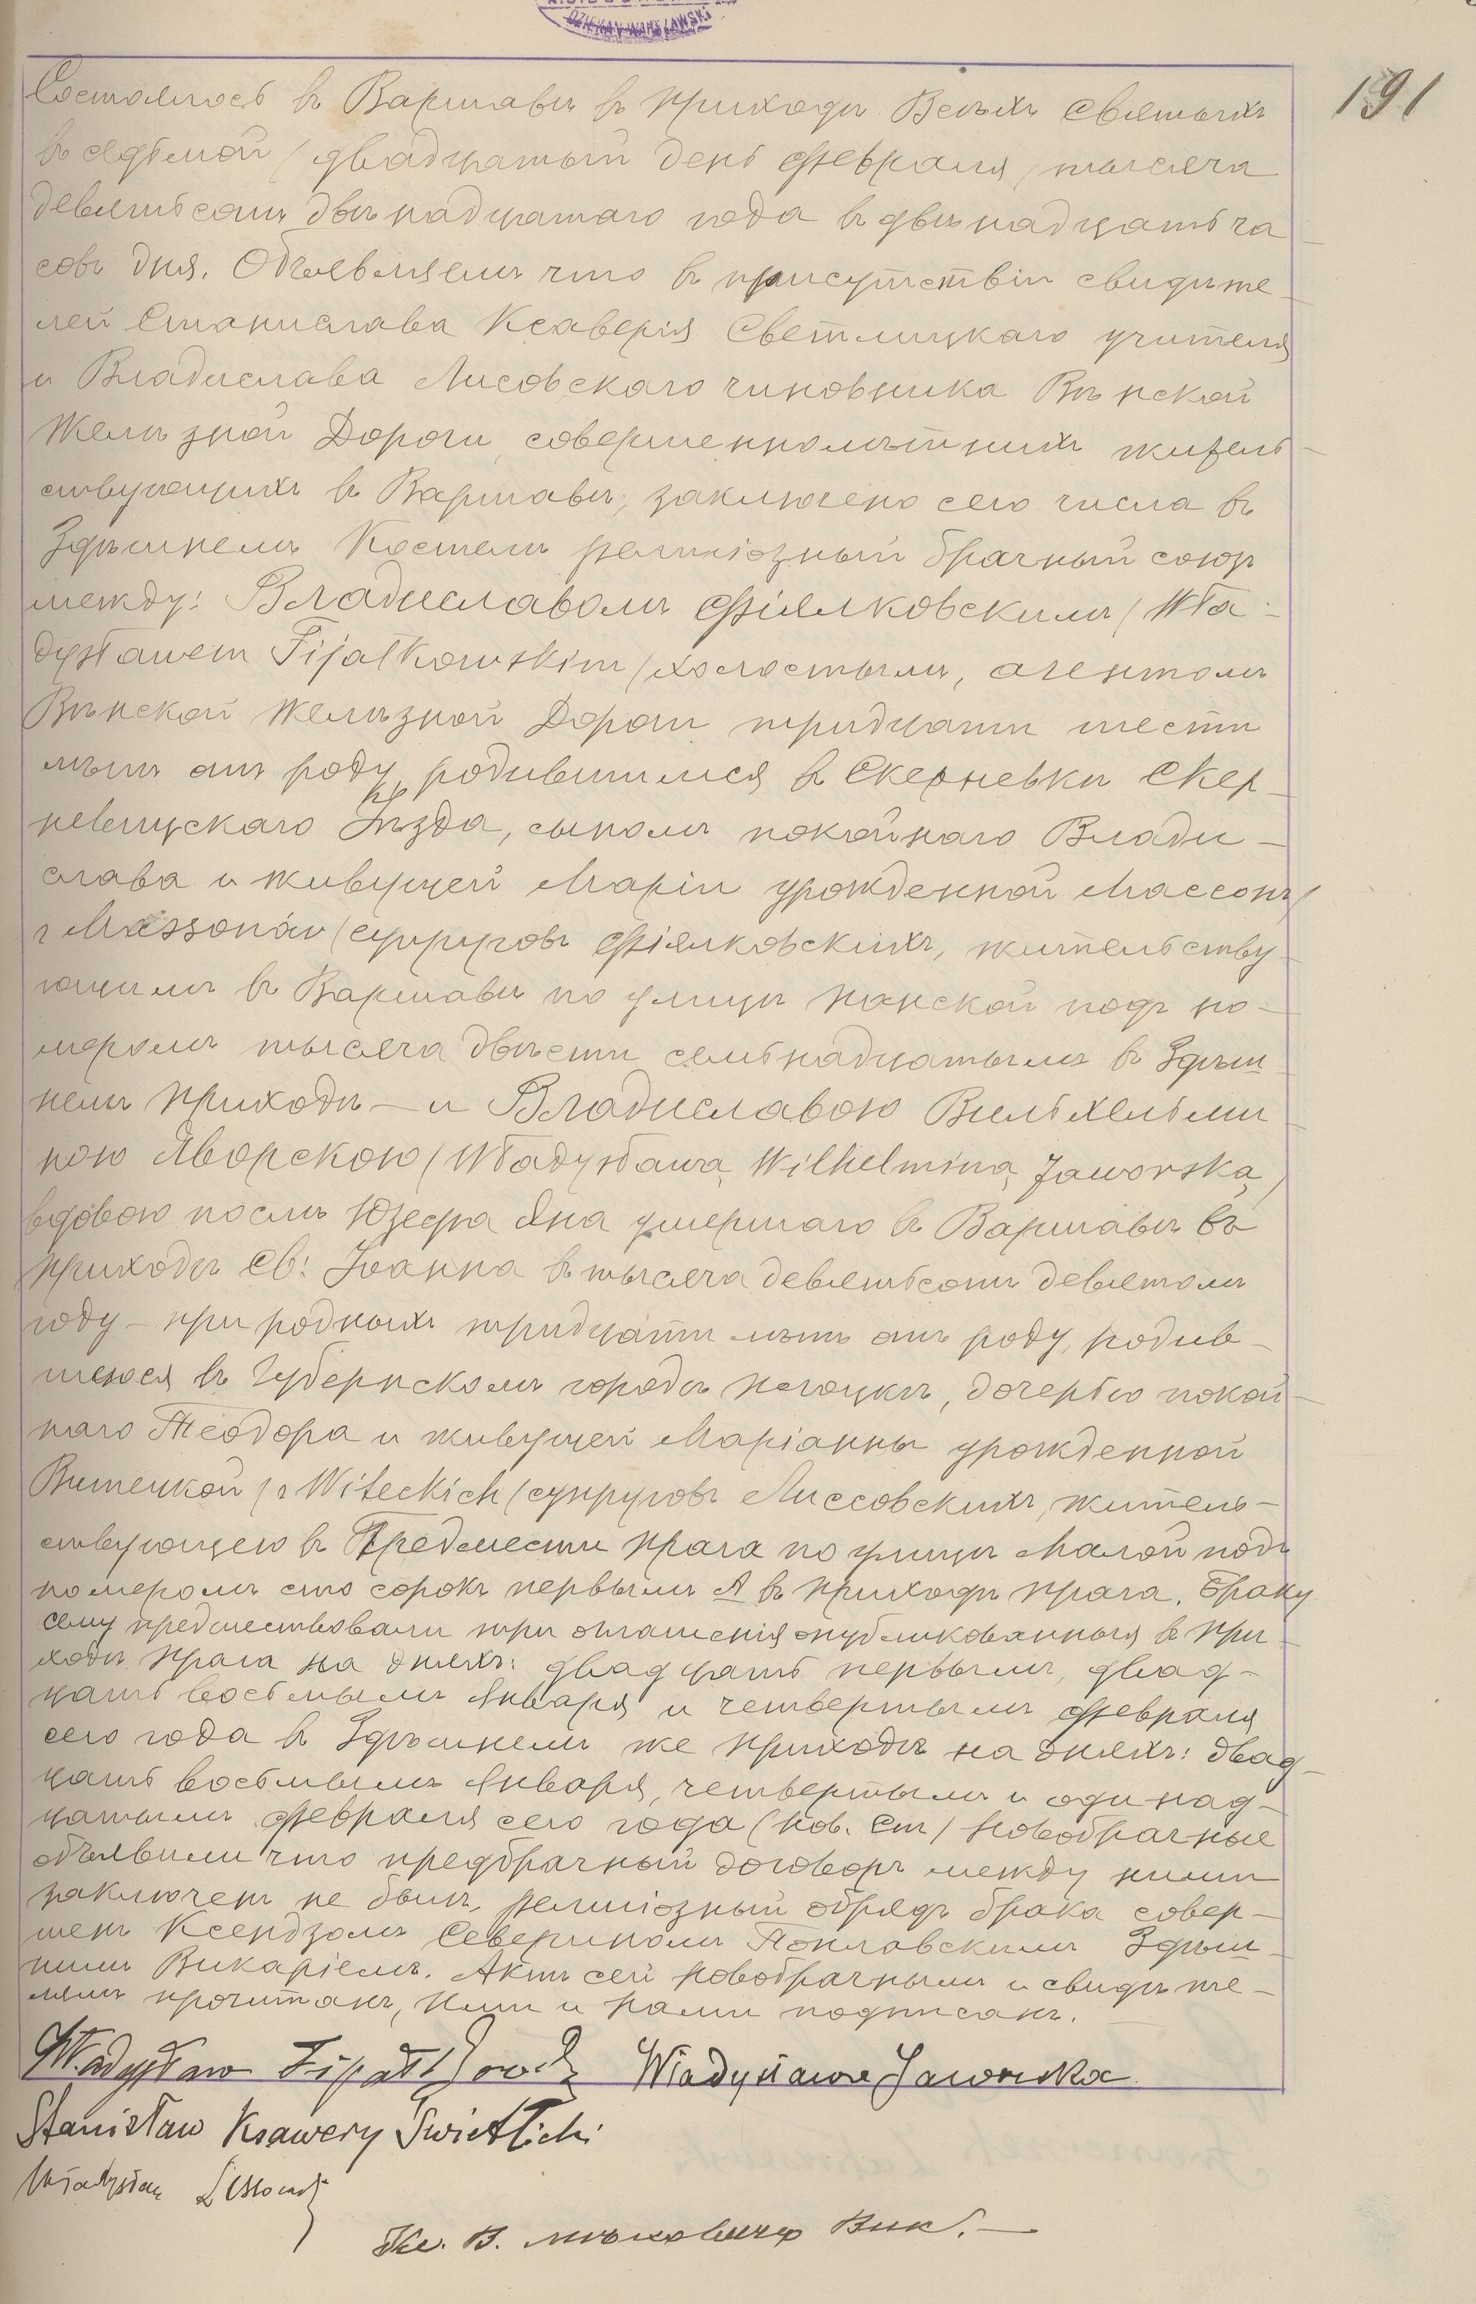 DZIEKAN WARSZAWSKI
191
Состоялось въ Варшавѣ въ приходѣ Всѣхъ Святыхъ
въ седьмой / двадцатый день Февраля / тысяча
девятьсотъ двѣнадцатаго года въ двѣнадцать ча
совъ дня. Объявляемъ что въ присутствіи свидѣте-
лей Станислава Ксаверія Светлицкаго учителя
и Владислава Лисовскаго чиновника Вѣнской
Желѣзной Дороги, совершеннолѣтнихъ житель-
ствующихъ въ Варшавѣ, заключено сего числа въ
Здѣшнемъ Костелѣ религіозный брачный союзъ
между: Владиславомъ Фіялковскимъ / Wła-
dysławem Fijałkowskim / холостымъ, агентомъ
Вѣнской Желѣзной Дороги тридцати шести
лѣтъ отъ роду, родившимся въ Скерневки Скер-
невицскаго уѣзда, сыномъ покойнаго Влади-
слава и живущей Маріи урожденной Массонъ /
z Massonów / супруговъ Фіялковскихъ, жительству-
ющимъ въ Варшавѣ по улицѣ Панской подъ но-
меромъ тысяча двѣсти семьнадцатымъ въ Здѣш
немъ приходѣ — и Владиславою Вильхельми
ною Яворскою / Władysławą Wilhelminą Jaworską /
вдовою послѣ Юзефа Яна умершаго въ Варшавѣ въ
приходѣ Св: Іоанна въ тысяча девятьсотъ девятомъ
году — при родныхъ тридцати лѣтъ отъ роду, родив-
шеюся въ Губернскомъ городѣ Плоцкѣ, дочерью покой-
наго Теодора и живущей Маріанны урожденной
Витецкой / z Witeckich / супруговъ Лиссовскихъ, житель-
ствующею въ Предмести Прага по улицѣ Малой подъ
номеромъ сто сорокъ первымъ А въ приходѣ Прага. Браку
сему предшествовали три оглашенія опубликованныя въ при-
ходѣ Прага на дняхъ: двадцать первымъ, двад-
цать восьмымъ Января и четвертымъ Февраля
сего года въ Здѣшнемъ же приходѣ на дняхъ: двад-
цать восьмымъ Января, четвертымъ и одинад-
цатымъ Февраля сего года (нов. Ст) Новобрачные
объявили что предбрачный договоръ между ними
заключенъ не былъ, религіозный обрядъ брака совер-
шенъ Ксендзомъ Севериномъ Поплавскимъ Здѣш-
нимъ Викаріемъ. Актъ сей новобрачнымъ и свидѣте-
лямъ прочитанъ, ими и нами подписанъ.
Władysław Fijałkowski Władysława Jaworska
Stanisław Ksawery Świetlicki
Władysław Lissowski
Кс. В. Вик. —